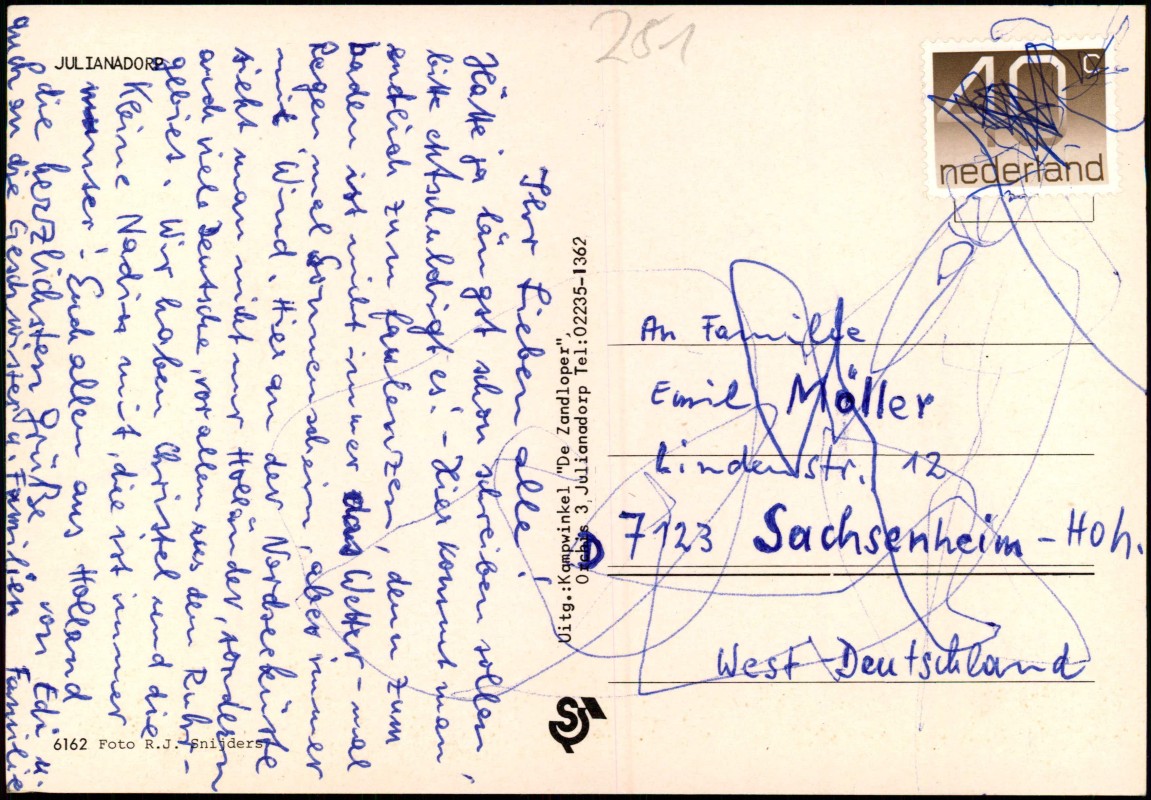 JULIANADORP
Ihr Lieben alle!
Hätte ja längst schon schreiben sollen,
bitte entschuldigt es! – Hier kommt man
endlich zum faulenzen, denn zum
baden ist nicht immer das Wetter – mal
Regen mal Sonnenschein, aber immer
mit Wind. Hier an der Nordseeküste
sieht man nicht nur Holländer, sondern
auch viele Deutsche, vor allem aus dem Ruhr-
gebiet. Wir haben Christel und die
kleine Nadin mit, die ist immer
munter! Euch allen aus Holland
die herzlichsten Grüße von Edi u.
auch an die Geschwister u. Familien Familie
6162 Foto R.J. Snijders
Uitg.:Kampwinkel "De Zandloper",
Orchis 3, Julianadorp Tel:02235-1362
251
40 c
nederland
An Familie
Emil Möller
Lindenstr. 12
D 7123 Sachsenheim - Hoh.
West Deutschland